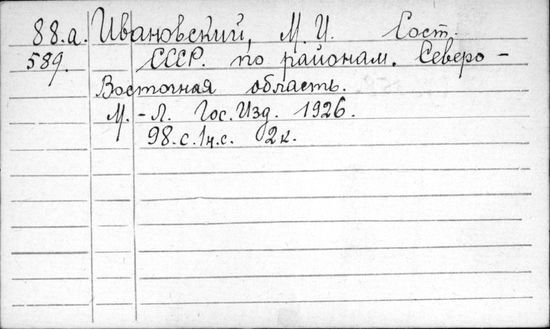 88.а. Ивановский, М. И. Сост.
589. СССР. по районам. Северо-
Восточная область.
М.-Л. Гос. Изд. 1926.
98.с. 1н.с. 2к.